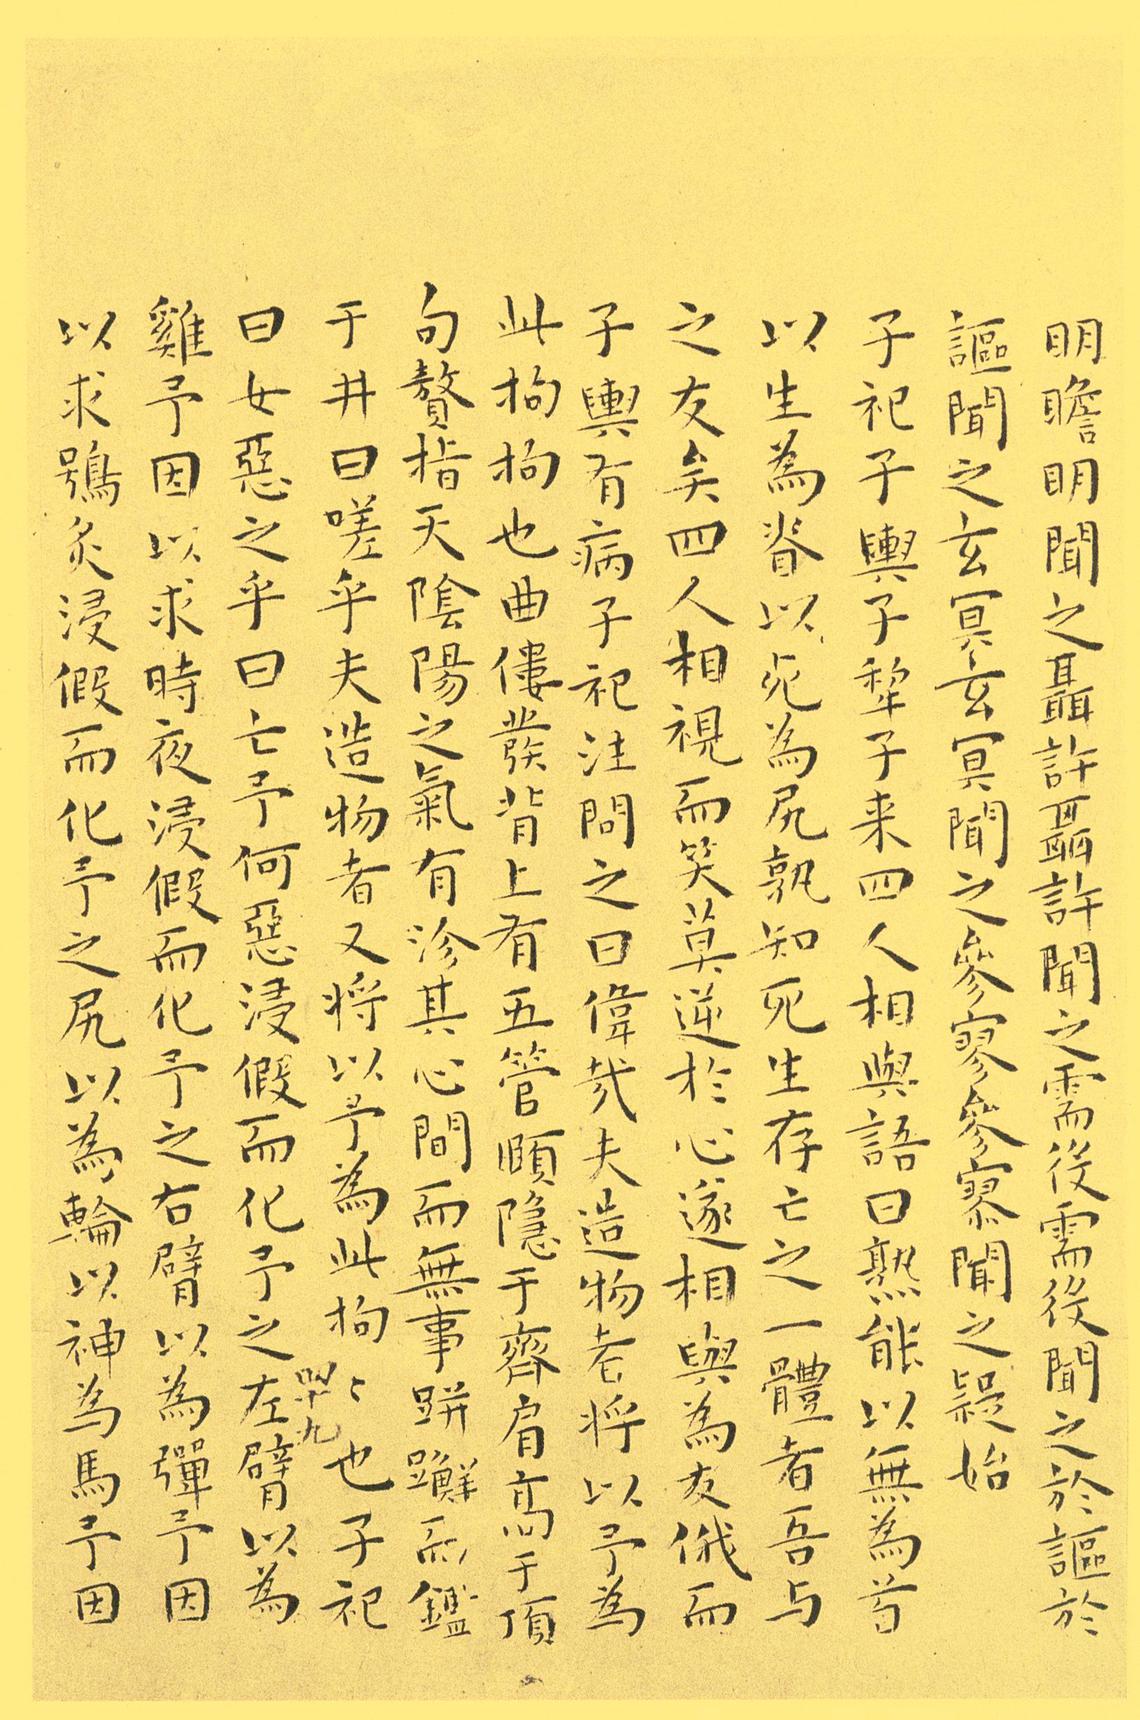 明瞻明聞之聶許聶許聞之需役需役聞之於謳於
謳聞之玄冥玄冥聞之參寥參寥聞之疑始
子祀子輿子犂子来四人相與語曰熟能以無為首
以生為脊以死為尻孰知死生存亡之一體者吾与
之友矣四人相視而笑莫逆於心遂相與為友俄而
子輿有病子祀注問之曰偉哉夫造物者将以予為
此拘拘也曲僂發背上有五管頤隱于齊肩髙于頂
句贅指天陰陽之氣有沴其心間而無事跰𨇤而鑑
于井曰嗟乎夫造物者又将以予為此拘〻也子祀
四十九
曰女惡之乎曰亡予何惡浸假而化予之左臂以為
雞予因以求時夜浸假而化予之右臂以為彈予因
以求鴞炙浸假而化予之尻以為輪以神為馬予因